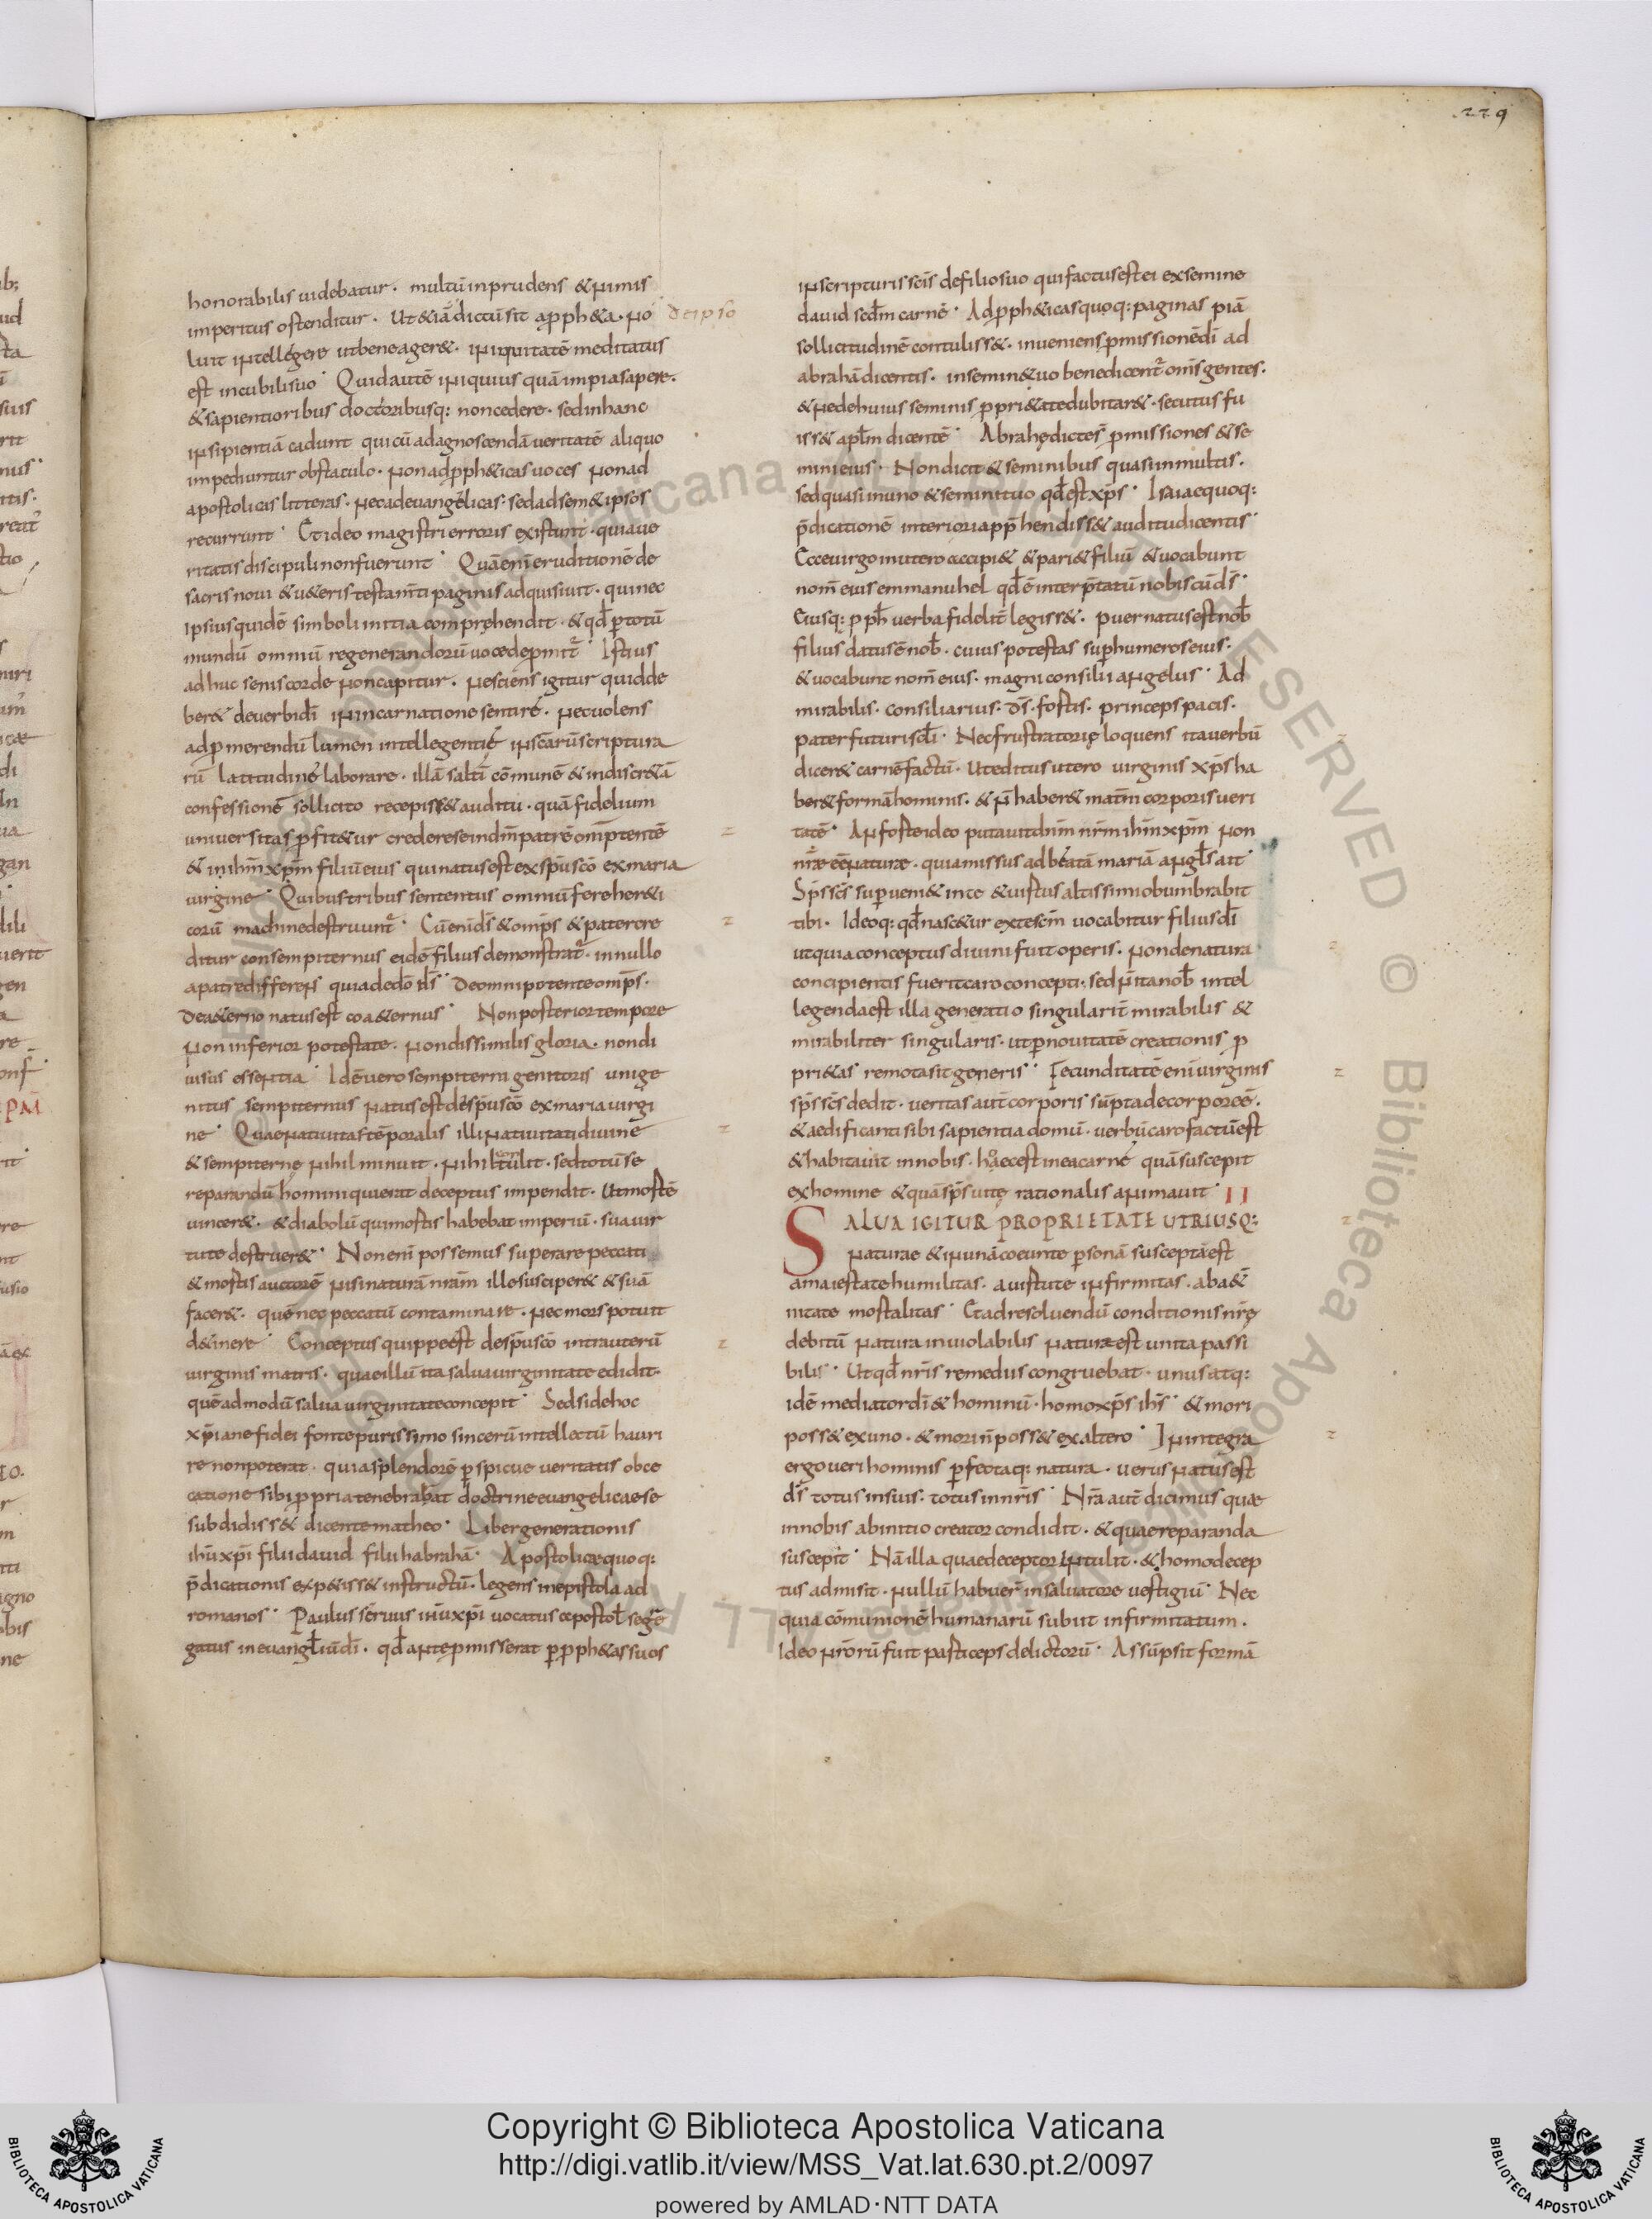 229
honorabilis uidebatur. multū inprudens & nimis
imperitus ostenditur. Ut & iā dictū sit a ꝓph&a. no
de ipso
luit intellegere ut bene ager&. iniquitatē meditatus
est in cubili suo. Quid autē iniquius quā impia sapere.
& sapientioribus doctoribusq: non cedere. sed in hanc
insipientiā cadunt qui cū ad agnoscendā ueritatē aliquo
impediuntur obstaculo. non ad ꝓph&icas uoces non ad
apostolicas litteras. nec ad euangelicas. sed ad sem&ipsos
recurrunt. Et ideo magistri erroris existunt. quia ue
ritatis discipuli non fuerunt. Quā enī eruditionē de
sacris noui & u&eris testam̄ti paginis adquisiuit. qui nec
ipsius quidē simboli initia comprehendit. & qđ ꝑ totū
mundū omniū regenerandorū uoce depmit̄. Istius
adhuc senis corde non capitur. nesciens igitur quid de
ber& de uerbi dī in incarnatione sentire. nec uolens
ad ꝓmerendū lumen intellegentie in scārū scriptura
rū latitudine laborare. illā saltī cōmunē & indiscr&ā
confessionē sollicito recepiss& auditu. quā fidelium
uniuersitas ꝓfit&ur credere se in dm̄ patrē omīptentē
& in ihm̄ xpm̄ filiū eius qui natus est ex sp̄u scō ex maria
uirgine. Quibus tribus sententiis omniū fere her&i
corū machine destruunt̄. Cū enī ds̄ & omp̄s & pater cre
ditur consempiternus eidē filius demonstrat̄. in nullo
a patre differens quia de dō ds̄. De omnipotente omp̄s.
De a&erno natus est coa&ernus. Non posterior tempore
non inferior potestate. non dissimilis gloria. non di
uisus essentia. Idē uero sempiterni genitoris unige
nitus sempiternus natus est de sp̄u scō ex maria uirgi
ne. Quae natiuitas tēporalis illi natiuitati diuine
& sempiternę nihil minuit. nihil contulit. sed totū se
reparandū homini qui erat deceptus impendit. Ut mortē
uincer&. & diabolū qui mortis habebat imperiū. sua uir
tute destruer&. Non enī possemus superare peccati
& mortis auctorē nisi naturā nram̄ ille susciper& & suā
facer&. quē nec peccatū contaminare. nec mors potuit
d&inere. Conceptus quippe est de sp̄u scō intra uterū
uirginis matris. quae illū ita salua uirginitate edidit.
quē ad modū salua uirginitate concepit. Sed si de hoc
xp̄iane fidei fonte purissimo sincerū intellectū hauri
re non poterat. quia splendorē ꝑspicue ueritatis obce
catione sibi ꝓpria tenebrabat doctrine euangelicae se
subdidiss& dicente matheo. Liber generationis
ihū xpī filii dauid filii habrahā. Apostolicae quoq:
p̄dicationis exp&iss& instructū. legens in epistola ad
romanos. Paulus seruus ihū xpī uocatus apostol̄ segre
gatus in euangl̄iū dī. qđ ante ꝓmisserat ꝑ ꝓph&as suos
in scripturis scīs de filio suo qui factus est ei ex semine
dauid secdm̄ carnē. Ad ꝓph&icas quoq: paginas piā
sollicitudinē contuliss&. inueniens ꝓmissionē dī ad
abrahā dicentis. in semin& uo benedicent̄ oms̄ gentes.
& ne de huius seminis ꝓpri&ate dubitar&. secutus fu
iss& aplm̄ dicentē. Abrahę dictę s̄ ꝓmissiones & se
mini eius. Non dicit & seminibus quasi in multis.
sed quasi in uno & semini tuo qđ est xp̄s. Isaiae quoq:
p̄dicationē interiori app̄hendiss& auditu dicentis.
Ecce uirgo in utero accipi& & pari& filiū & uocabunt
nom̄ eius emmanuhel qđ ē interp̄tatū nobiscū ds̄.
Eiusq: ꝓph̄ uerba fidelit̄ legiss&. puer natus est nob̄
filius datus ē nob̄. cuius potestas suꝑ humeros eius.
& uocabunt nom̄ eius. magni consilii angelus. Ad
mirabilis. consiliarius. ds̄. fortis. princeps pacis.
pater futuri scl̄i. Nec frustratorię loquens ita uerbū
dicer& carnē factū. Ut editus utero uirginis xp̄s ha
ber& formā hominis. & n̄ haber& matrn̄ corporis ueri
tatē. An forte ideo putauit dnm̄ nrm̄ ihm̄ xpm̄ non
nrae eē naturae. quia missus ad beatā mariā angl̄s ait.
Sp̄s scs̄ suꝑueni& in te & uirtus altissimi obumbrabit
tibi. Ideoq: qđ nasc&ur ex te scm̄ uocabitur filius dī
ut quia conceptus diuini fuit operis. non de natura
concipientis fuerit caro concepti. sed n̄ ita nob̄ intel
legenda est illa generatio singularit̄ mirabilis &
mirabiliter singularis. ut ꝑ nouitatē creationis ꝓ
pri&as remota sit generis. Fecunditatē enī uirginis
sp̄s scs̄ dedit. ueritas aut̄ corporis sūpta de corpore ē.
& aedificanti sibi sapientia domū. uerbū caro factū est
& habitauit in nobis. hoc est in ea carne quā suscepit
ex homine & quā sp̄s uitę rationalis animauit. II
SALUA IGITUR PROPRIETATE UTRIUSQ:
naturae & in unā coeunte ꝑsonā suscepta ēst
a maiestate humilitas. a uirtute infirmitas. ab a&
nitate mortalitas. Et ad resoluendū conditionis nrę
debitū natura inuiolabilis naturae est unita passi
bilis. Ut qđ nris̄ remediis congruebat. unus atq:
idē mediator dī & hominū. homo xp̄s ihs̄. & mori
poss& ex uno. & mori n̄ poss& ex altero. In integra
ergo ueri hominis ꝑfectaq: natura. uerus natus est
ds̄ totus in suis. totus in nris̄. Nra aut̄ dicimus quae
in nobis ab initio creator condidit. & quae reparanda
suscepit. Nā illa quae deceptor intulit. & homo decep
tus admisit. nullū habuer̄ in saluatore uestigiū. Nec
quia cōmunionē humanarū subiit infirmitatum.
Ideo nrorū fuit particeps delictorū. Assūpsit formā
Copyright © Biblioteca Apostolica Vaticana
http://digi.vatlib.it/view/MSS_Vat.lat.630.pt.2/0097
powered by AMLAD·NTT DATA
BIBLIOTECA APOSTOLICA VATICANA
BIBLIOTECA APOSTOLICA VATICANA